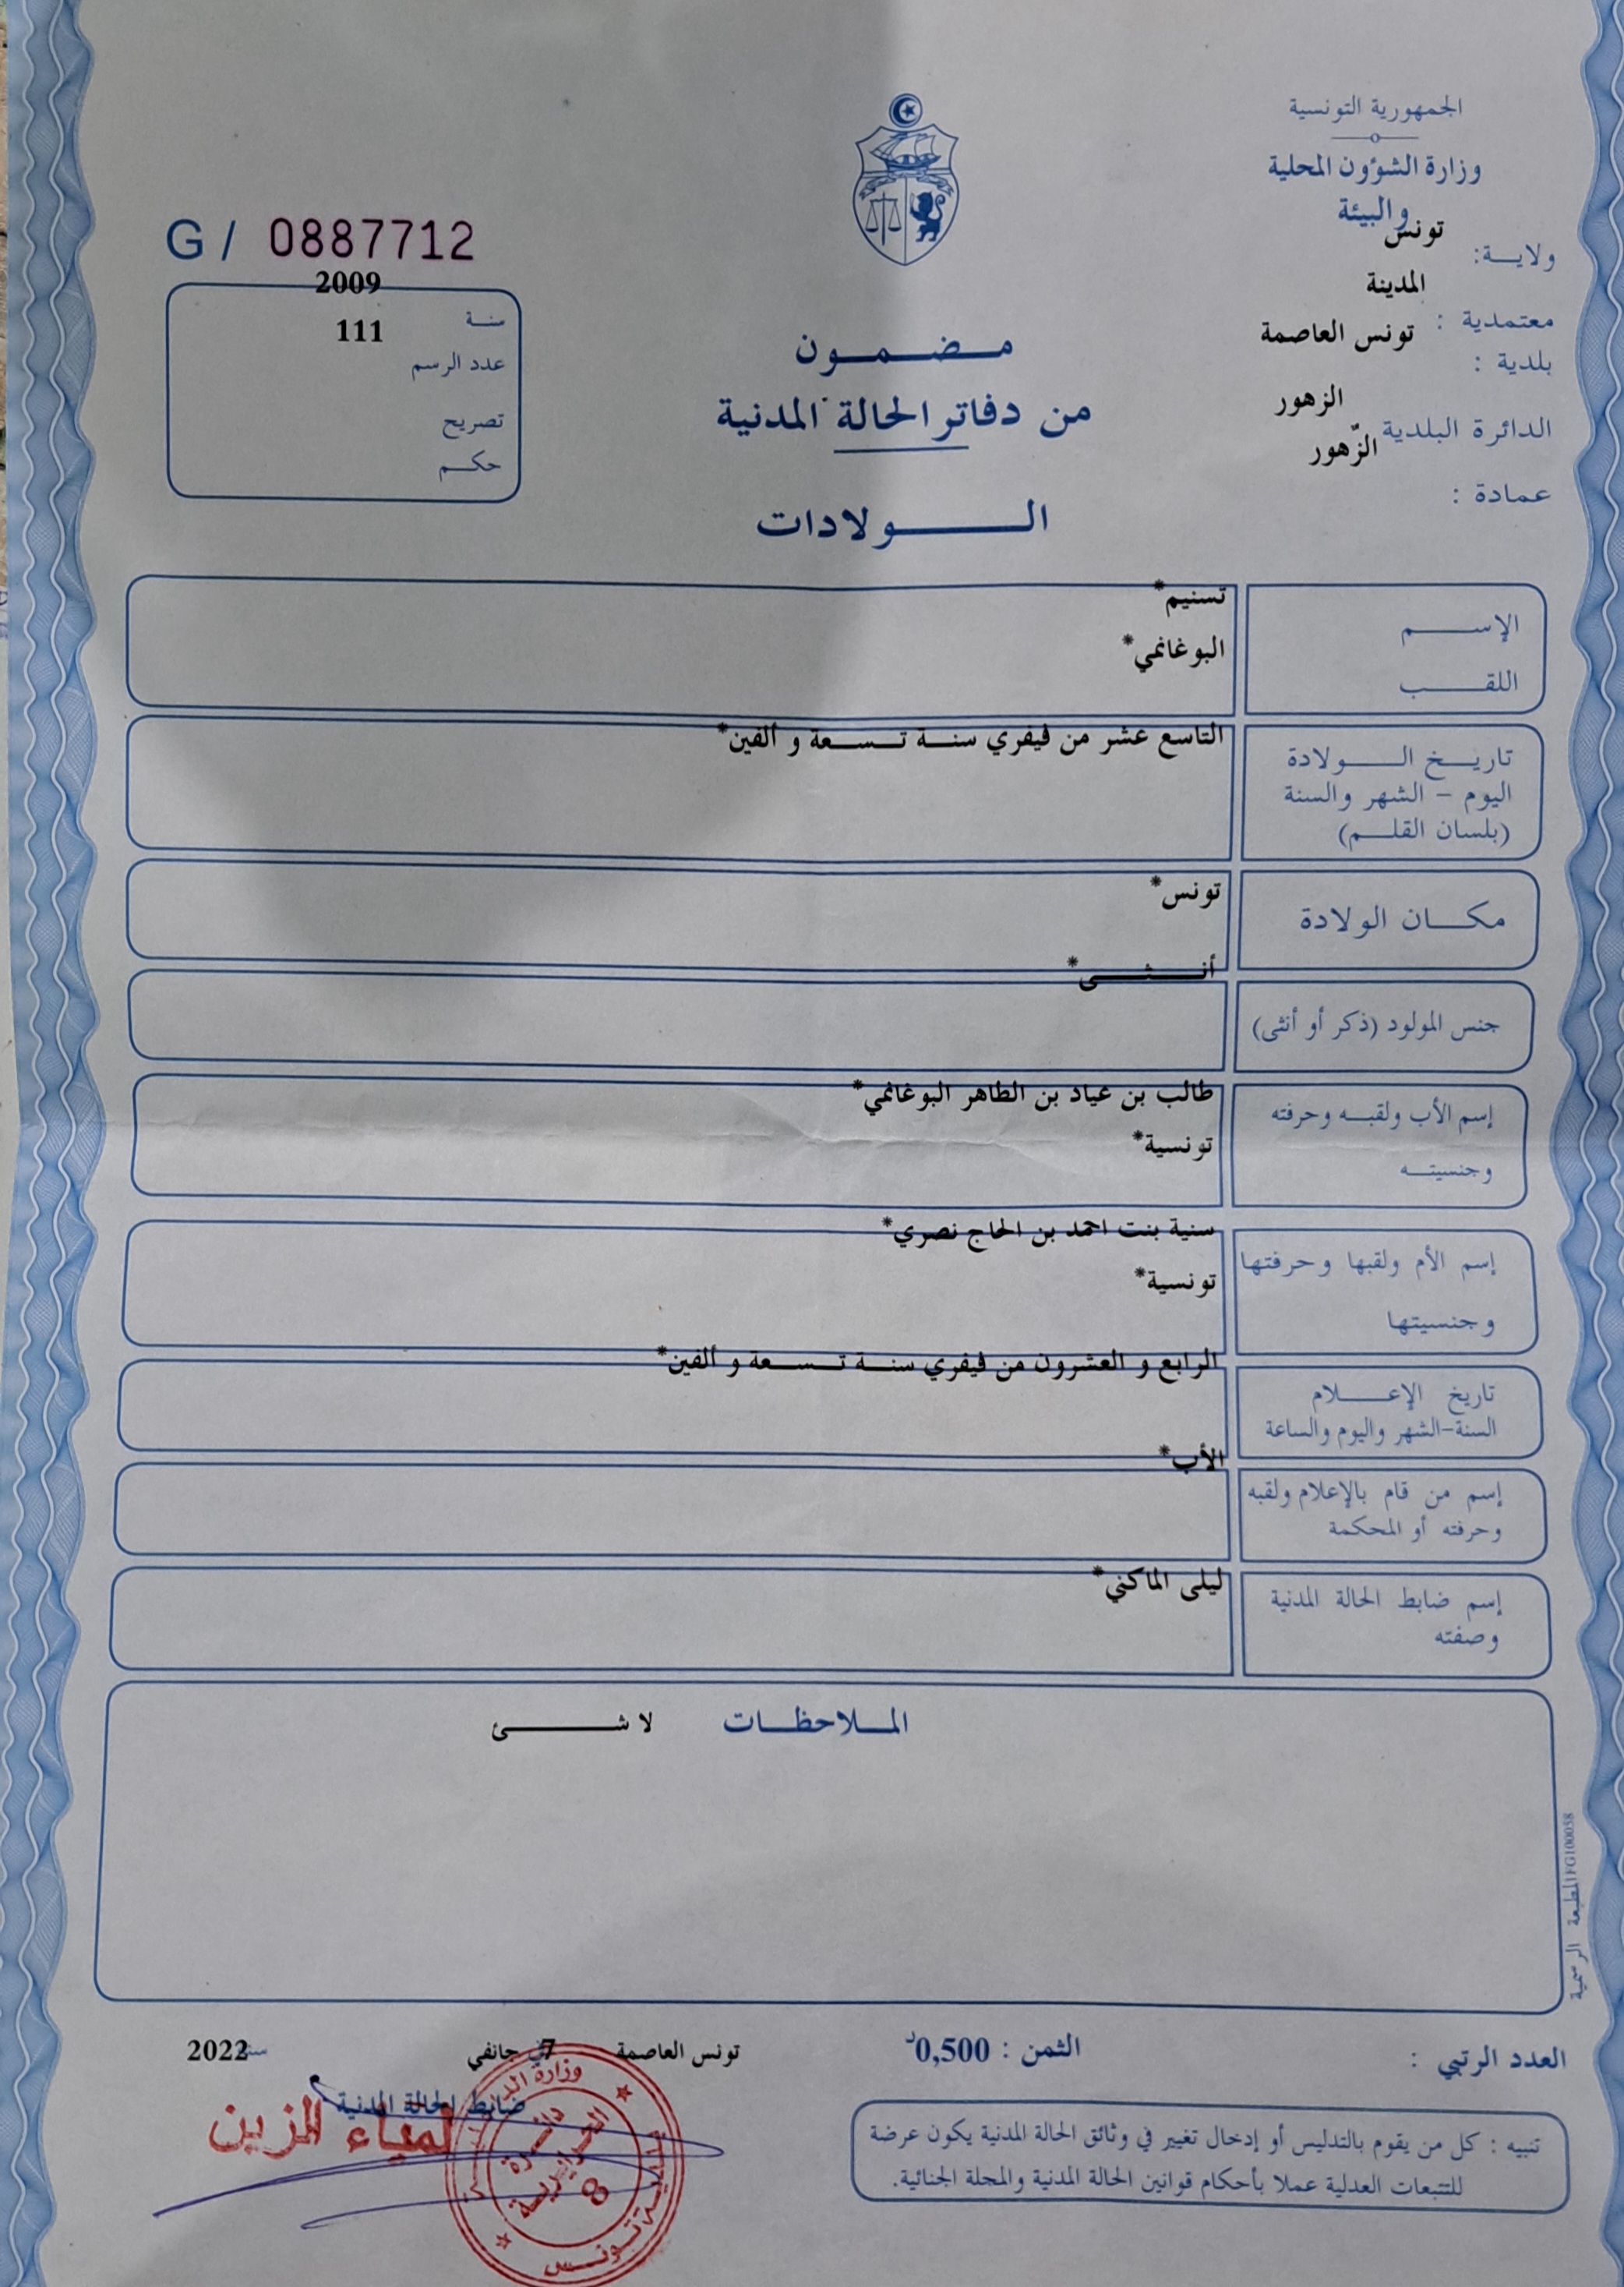 الجمهورية التونسية
وزارة الشؤون المحلية
والبيئة
ولاية: تونس
معتمدية : المدينة
بلدية : تونس العاصمة
الدائرة البلدية الزهور
عمادة : الزّهور
G / 0887712
سنة 2009
عدد الرسم 111
تصريح
حكم
مضمون
من دفاتر الحالة المدنية
الولادات
الإسم تسنيم*
اللقب البوغانمي*
تاريخ الولادة التاسع عشر من فيفري سنة تسعة و ألفين*
اليوم - الشهر والسنة
(بلسان القلم)
مكان الولادة تونس*
جنس المولود (ذكر أو أنثى) أنثى*
إسم الأب ولقبه وحرفته طالب بن عياد بن الطاهر البوغانمي*
وجنسيته تونسية*
إسم الأم ولقبها وحرفتها سنية بنت احمد بن الحاج نصري*
وجنسيتها تونسية*
تاريخ الإعلام الرابع و العشرون من فيفري سنة تسعة و ألفين*
السنة-الشهر واليوم والساعة
إسم من قام بالإعلام ولقبه الأب*
وحرفته أو المحكمة
إسم ضابط الحالة المدنية ليلى الماكني*
وصفته
الملاحظات لا شئ
المطبعة الرسمية FG100058
العدد الرتبي :
الثمن : 0,500د
تونس العاصمة في 7 جانفي سنة 2022
ضابط الحالة المدنية
لمياء المزين
دائرة
الحرايرية
8
تنبيه : كل من يقوم بالتدليس أو إدخال تغيير في وثائق الحالة المدنية يكون عرضة
للتتبعات العدلية عملا بأحكام قوانين الحالة المدنية والمجلة الجنائية.